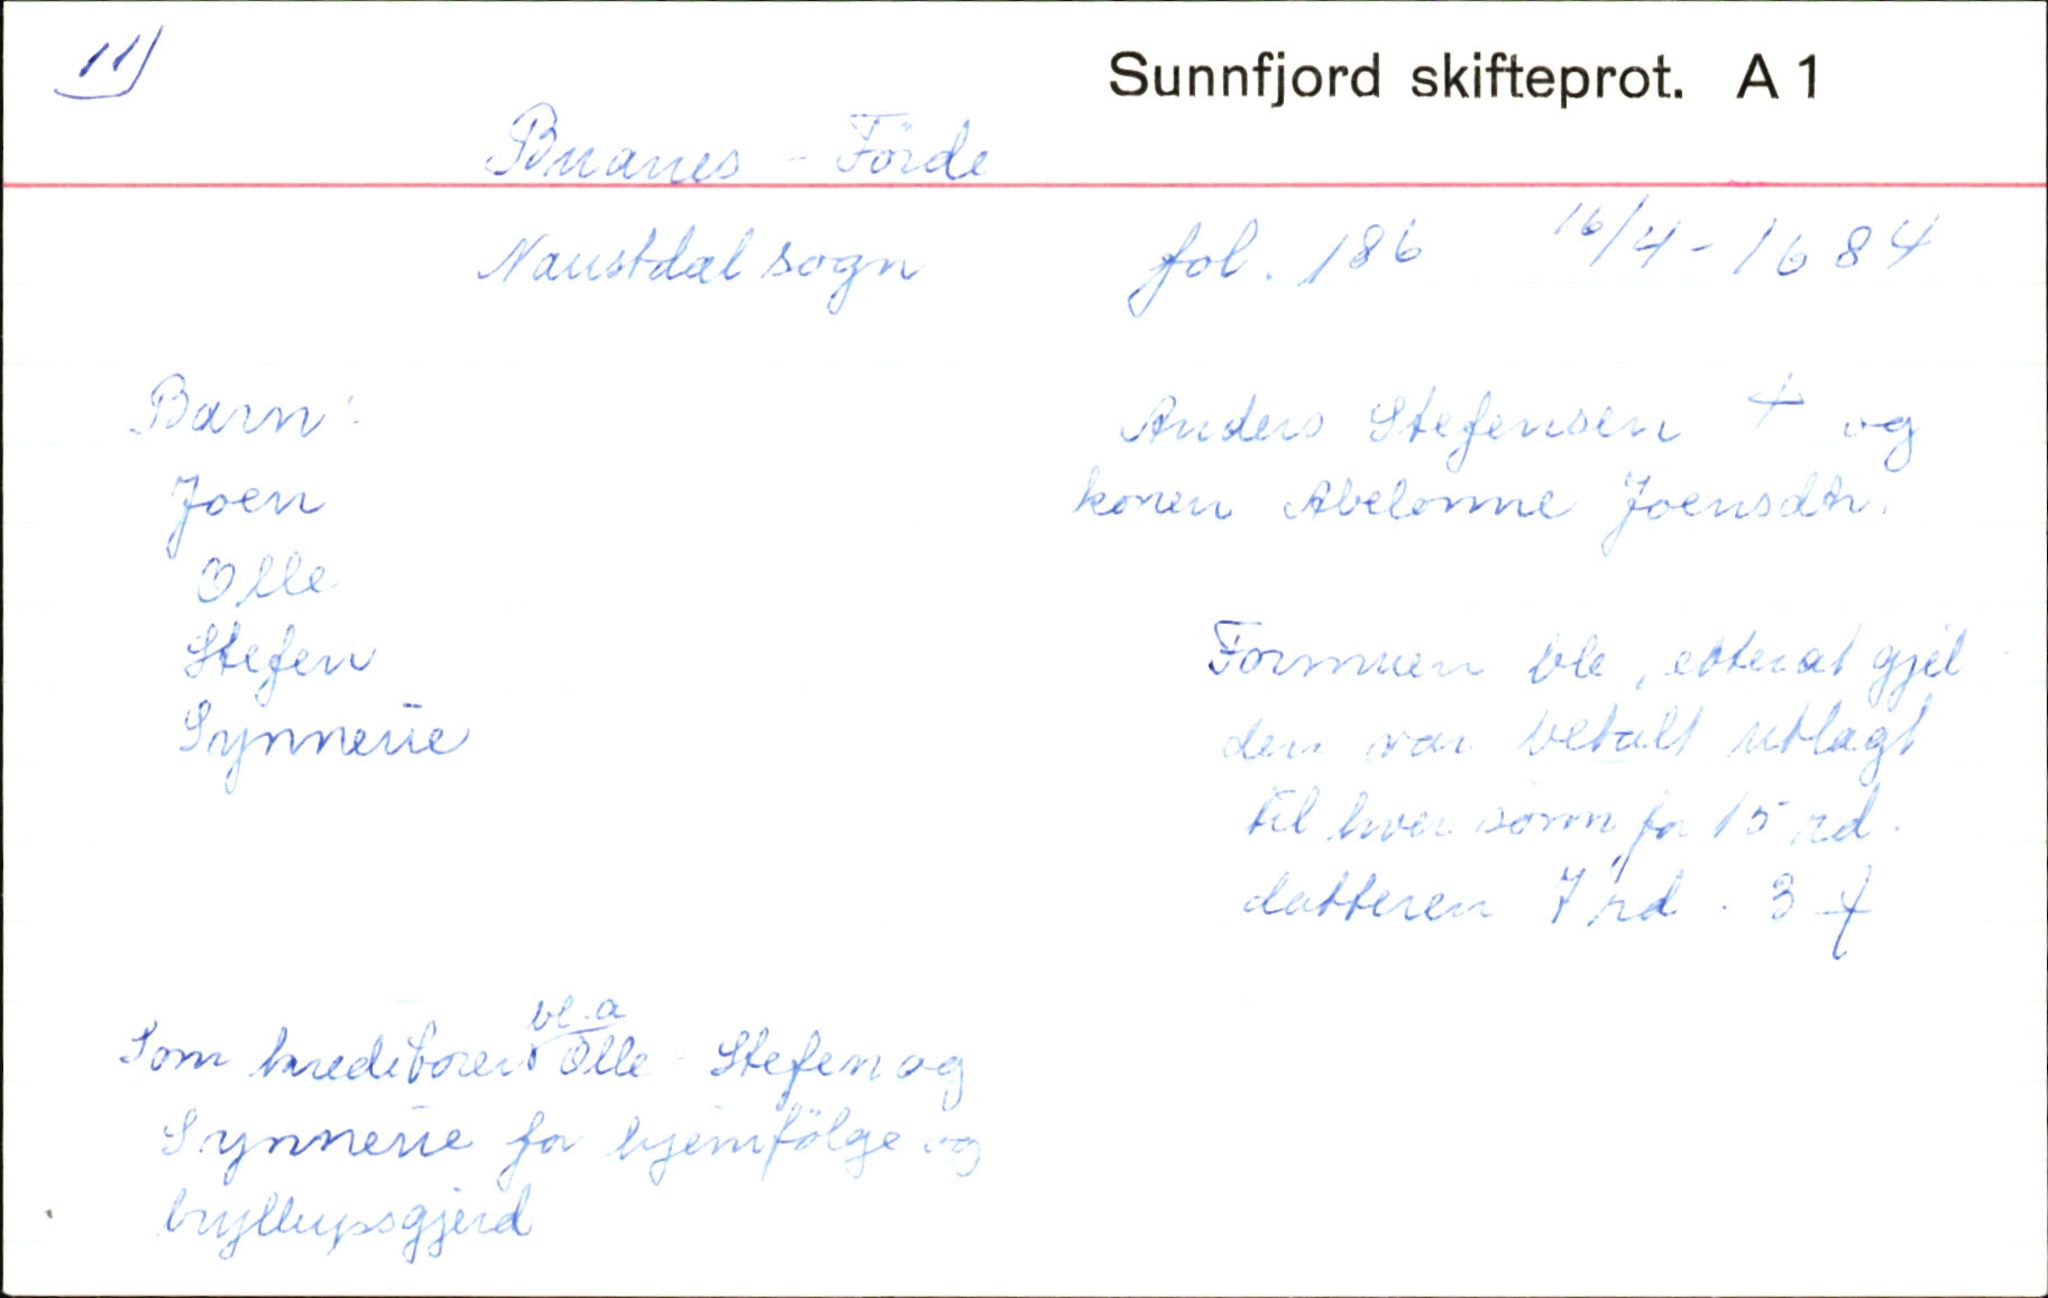 11)
Sunnfjord skifteprot. A 1
Buanes - Förde
Naustdal sogn fol. 186 16/4-1684
Barn:
Joen
Olle
Stefen
Synneue
Anders Stefensen + og
konen Abelonne Joensdtr.
Formuen ble, etterat gjel
den var betalt utlagt
til hver sönn for 15 rd.
datteren 7 rd. 3
bl. a
Som kreditorer Olle - Stefen og
Synneue for hjemfölge og
bryllupsgjerd